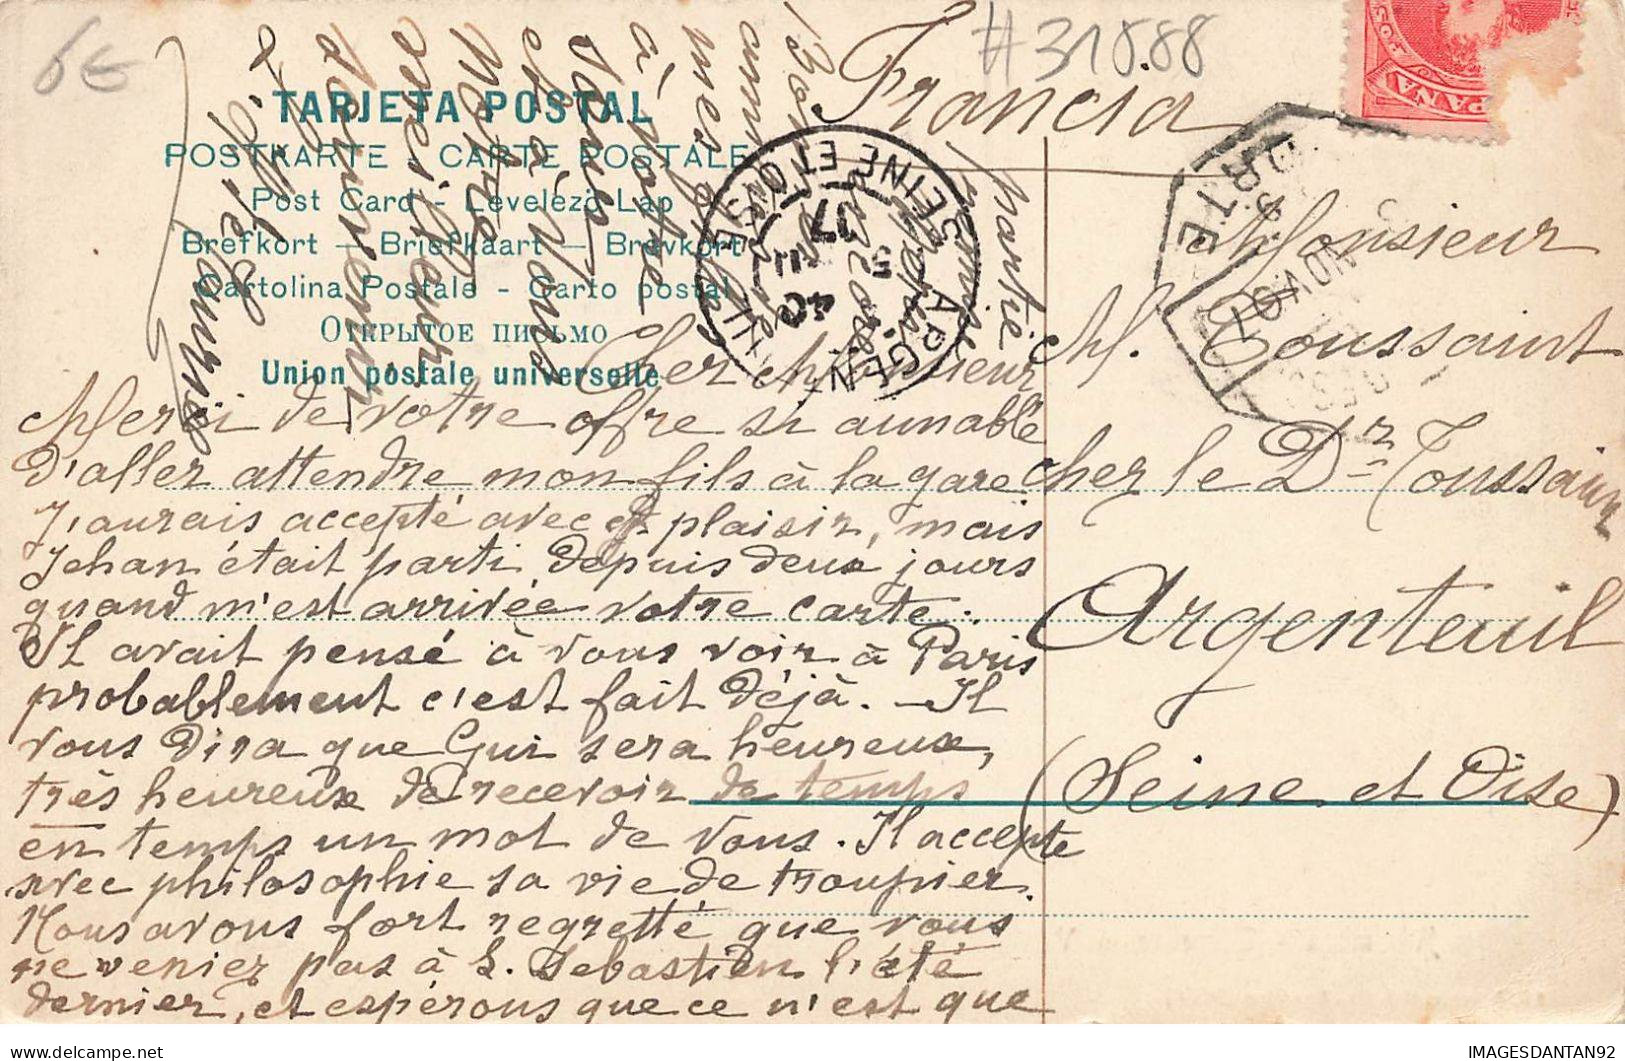 6€
#31888
Francia
TARJETA POSTAL
POSTKARTE - CARTE POSTALE
Post Card - Levelező-Lap
Brefkort - Briefkaart - Brevkort
Cartolina Postale - Carto postal
ОТКРЫТОЕ ПИСЬМО
Union postale universelle
ARGENTEUIL
SEINE ET OISE
4
5
07
NOV 07
ESPAÑA
Cher Monsieur
Merci de votre offre si aimable
d'aller attendre mon fils à la gare
J'aurais accepté avec plaisir, mais
Jehan était parti depuis deux jours
quand m'est arrivée votre carte.
Il avait pensé à vous voir à Paris
probablement c'est fait déjà. - Il
vous dira que Gui sera heureux,
très heureux de recevoir de temps
en temps un mot de vous. Il accepte
avec philosophie sa vie de troupier.
Nous avons fort regretté que vous
ne veniez pas à S. Sebastien l'été
dernier, et espérons que ce n'est que
partie remise
mes
à votre
et à vous
notre
meilleur
souvenir
Monsieur
M. Toussaint
chez le Dr Toussaint
Argenteuil
(Seine et Oise)
IMAGESDANTAN92